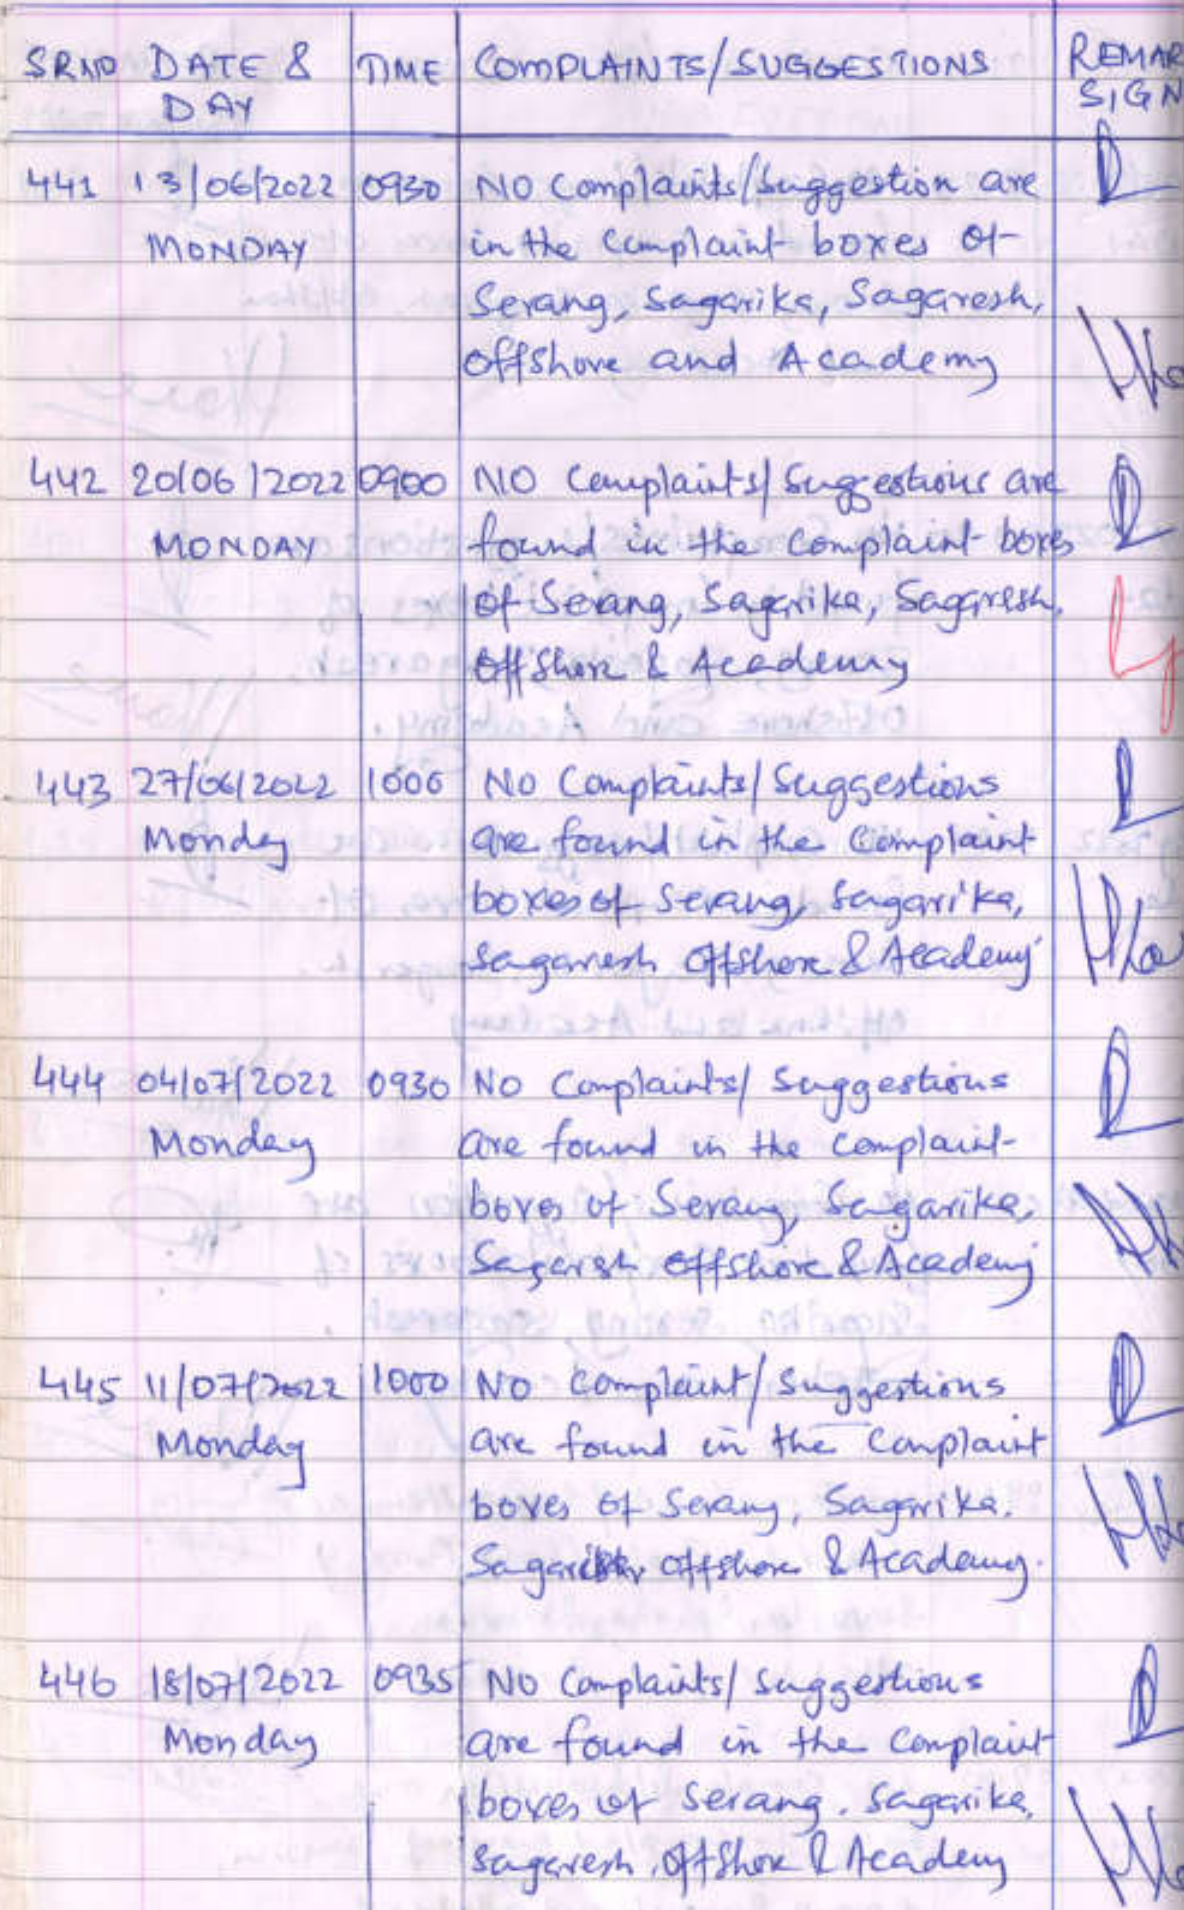 SRNO DATE & TIME COMPLAINTS/SUGGESTIONS REMAR
DAY SIGN
441 13/06/2022 0930 NO Complaints/Suggestion are
MONDAY in the Complaint boxes of
Serang, Sagarika, Sagaresh,
Offshore and Academy
442 20/06/2022 0900 NO Complaints/Suggestions are
MONDAY found in the Complaint boxes
of Serang, Sagarika, Sagaresh,
Offshore & Academy
443 27/06/2022 1000 No Complaints/Suggestions
Monday are found in the Complaint
boxes of Serang, Sagarika,
Sagaresh Offshore & Academy
444 04/07/2022 0930 No Complaints/Suggestions
Monday are found in the Complaint
boxes of Serang, Sagarika,
Sagarsh Offshore & Academy
445 11/07/2022 1000 No Complaint/Suggestions
Monday are found in the Complaint
boxes of Serang, Sagarika.
Offshore & Academy.
446 18/07/2022 0935 No Complaints/Suggestions
Monday are found in the Complaint
boxes of Serang. Sagarika,
Sagaresh, Offshore & Academy